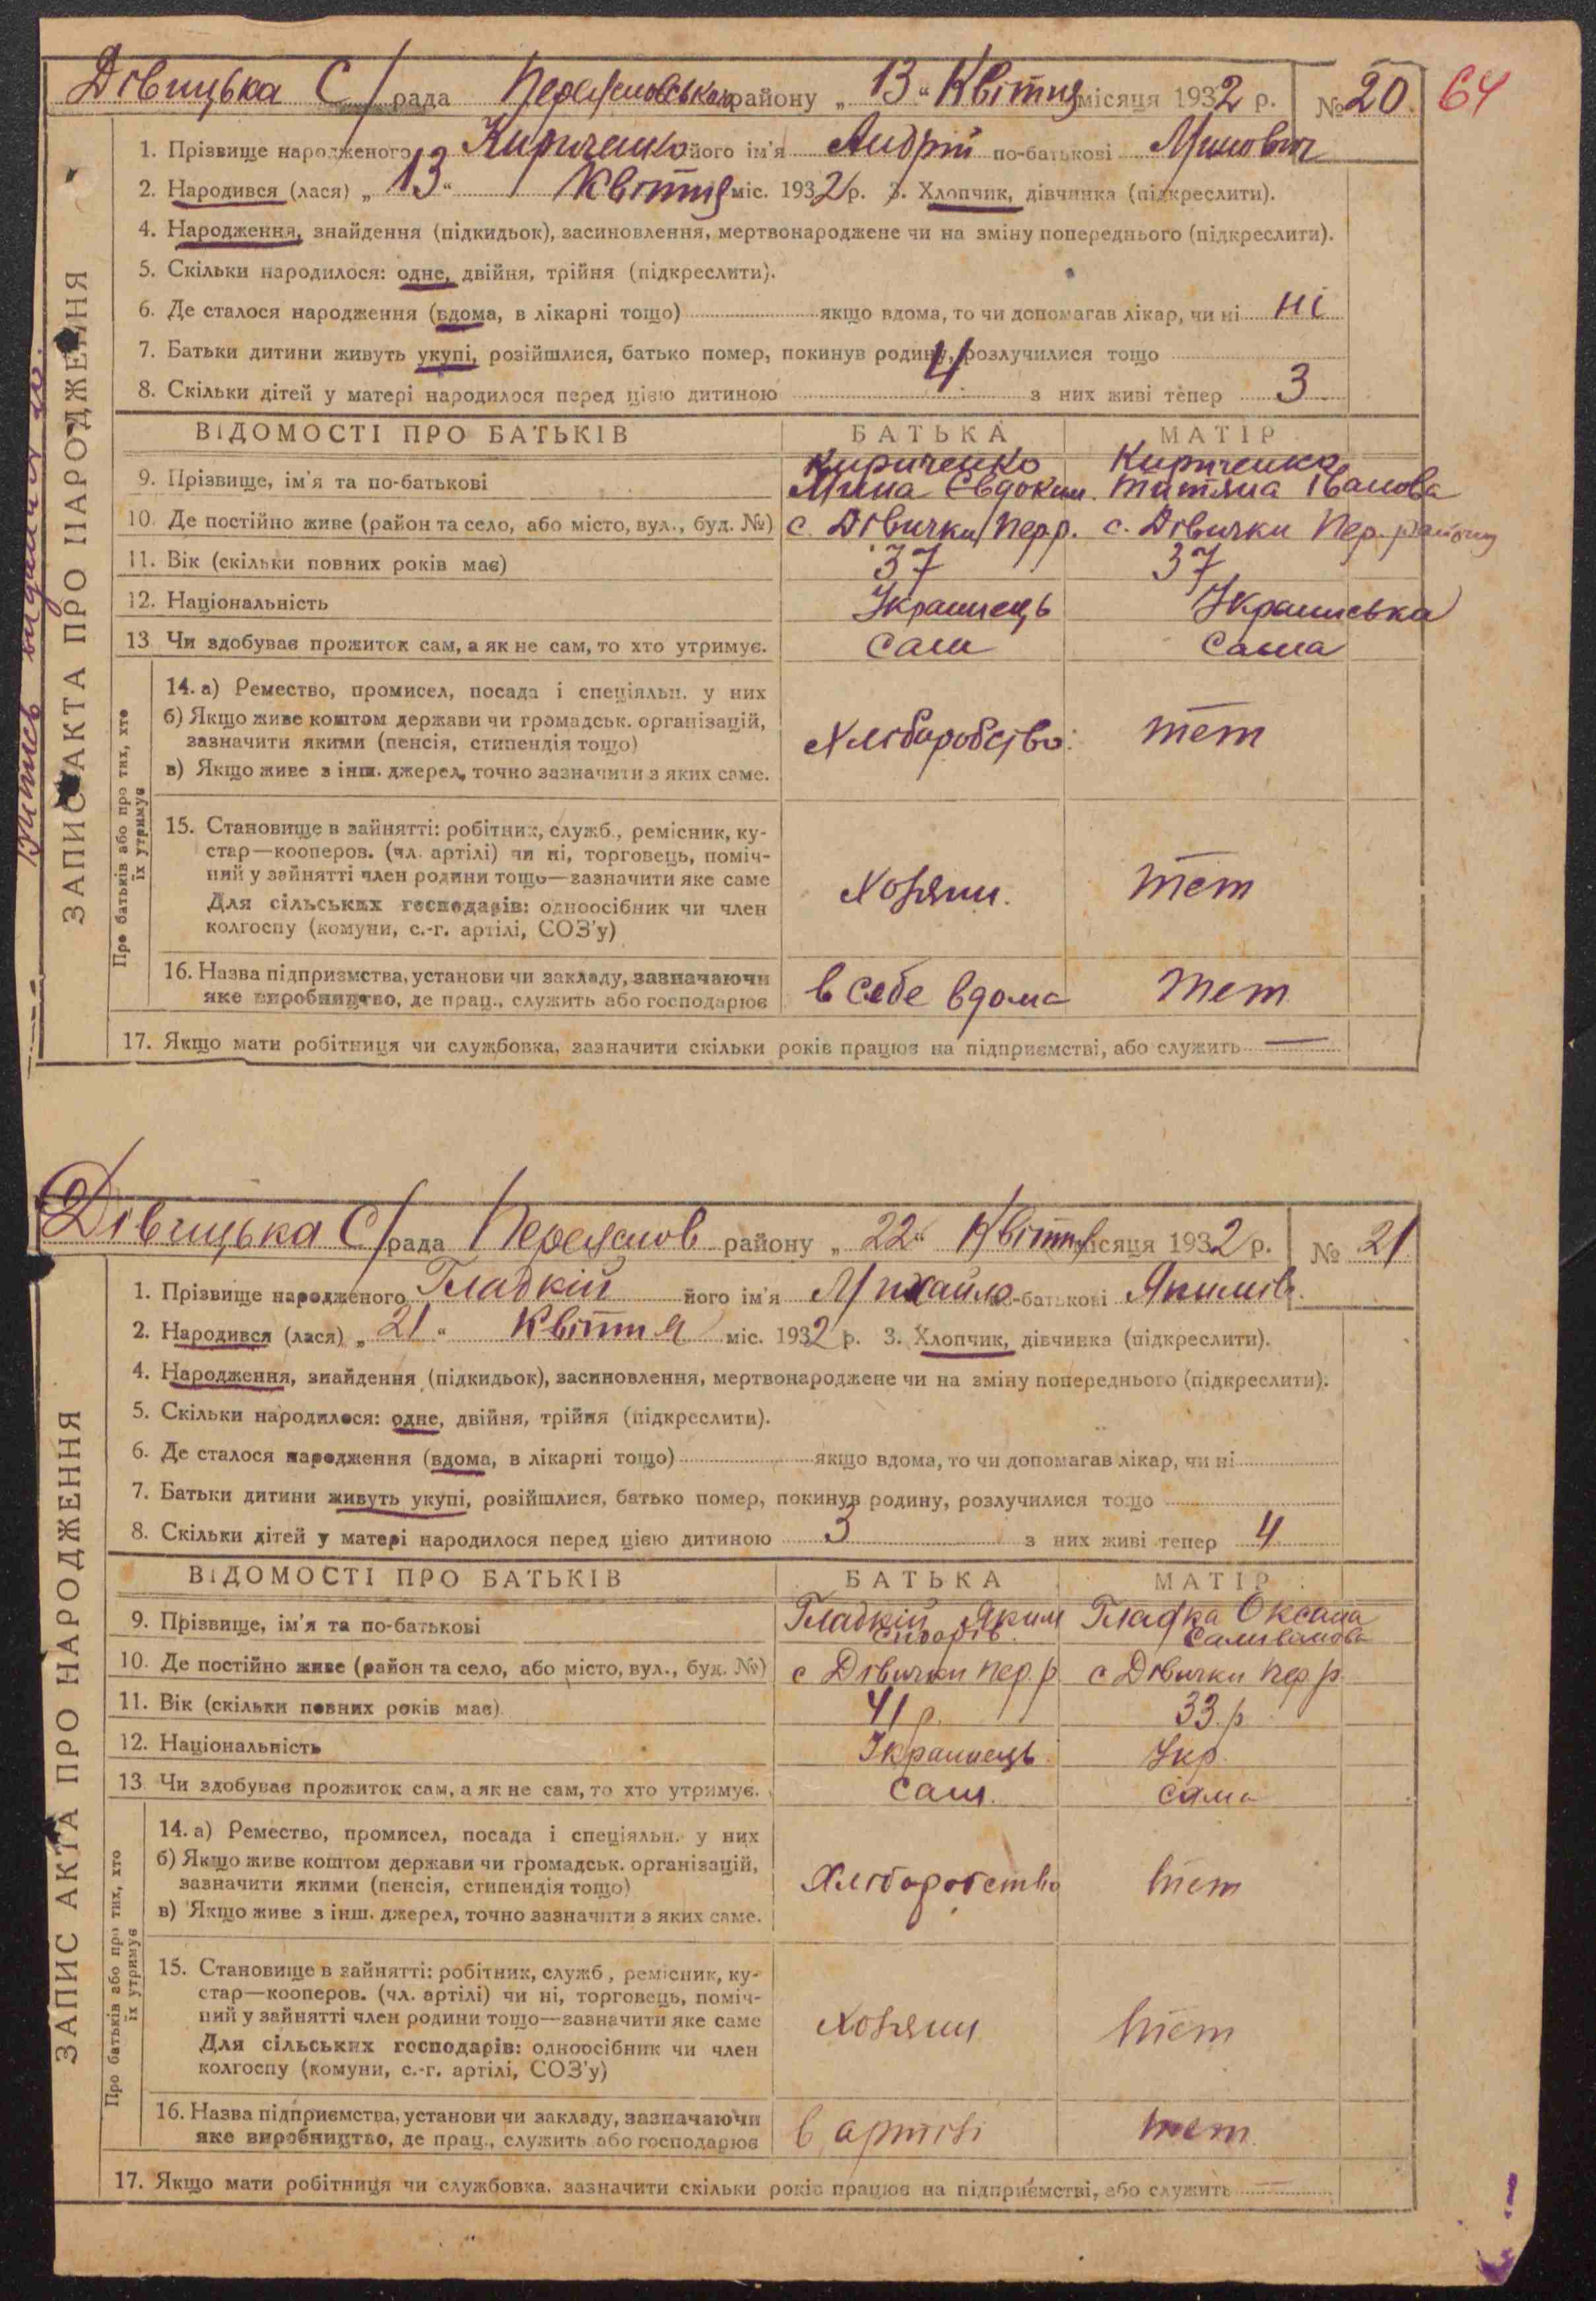 64
Дівицька С/рада Переяславськ району „13" Квітня місяця 1932 р. № 20.
1. Прізвище народженого Кириченко його ім'я Андрій по-батькові Минович
2. Народився (лася) „13" Квітня міс. 1932 р. 3. Хлопчик, дівчинка (підкреслити).
4. Народження, знайдення (підкидьок), засиновлення, мертвонароджене чи на зміну попереднього (підкреслити).
5. Скільки народилося: одне, двійня, трійня (підкреслити).
6. Де сталося народження (вдома, в лікарні тощо) якщо вдома, то чи допомагав лікар, чи ні ні
7. Батьки дитини живуть укупі, розійшлися, батько помер, покинув родину, розлучилися тощо
8. Скільки дітей у матері народилося перед цією дитиною 4 з них живі тепер 3
ВІДОМОСТІ ПРО БАТЬКІВ БАТЬКА МАТІР
9. Прізвище, ім'я та по-батькові Кириченко Мина Євдоким. Кириченко Титяна Іванова
10. Де постійно живе (район та село, або місто, вул., буд. №) с. Дівички Пер.р. с. Дівички Пер. району
11. Вік (скільки повних років має) 37 37
12. Національність Українець Українська
13 Чи здобуває прожиток сам, а як не сам, то хто утримує. Сам Сама
14. а) Ремество, промисел, посада і спеціяльн. у них
б) Якщо живе коштом держави чи громадськ. організацій,
зазначити якими (пенсія, стипендія тощо) Хліборобство теж
в) Якщо живе з інш. джерел, точно зазначити з яких саме.
15. Становище в зайнятті: робітник, служб., ремісник, ку-
стар—кооперов. (чл. артілі) чи ні, торговець, поміч-
ний у зайнятті член родини тощо—зазначити яке саме Хозяин. теж
Для сільських господарів: одноосібник чи член
колгоспу (комуни, с.-г. артілі, СОЗ'у)
16. Назва підприємства, установи чи закладу, зазначаючи
яке виробництво, де прац., служить або господарює в себе вдома теж
17. Якщо мати робітниця чи службовка, зазначити скільки років працює на підприємстві, або служить —
ЗАПИС АКТА ПРО НАРОДЖЕННЯ
Про батьків або про тих, хто
їх утримує
Дівицька С/рада Переяслов району „22" Квітня місяця 1932 р. № 21
1. Прізвище народженого Гладкій його ім'я Михайло по-батькові Якимів.
2. Народився (лася) „21" Квітня міс. 1932 р. 3. Хлопчик, дівчинка (підкреслити).
4. Народження, знайдення (підкидьок), засиновлення, мертвонароджене чи на зміну попереднього (підкреслити).
5. Скільки народилося: одне, двійня, трійня (підкреслити).
6. Де сталося народження (вдома, в лікарні тощо) якщо вдома, то чи допомагав лікар, чи ні
7. Батьки дитини живуть укупі, розійшлися, батько помер, покинув родину, розлучилися тощо
8. Скільки дітей у матері народилося перед цією дитиною 3 з них живі тепер 4
ВІДОМОСТІ ПРО БАТЬКІВ БАТЬКА МАТІР
9. Прізвище, ім'я та по-батькові Гладкій Яким Сидорів. Гладка Оксана Саливонова
10. Де постійно живе (район та село, або місто, вул., буд. №) с Дівички Пер. р. с Дівички Пер. р.
11. Вік (скільки повних років має) 41 р. 33 р.
12. Національність Українець Укр.
13 Чи здобуває прожиток сам, а як не сам, то хто утримує. Сам. Сама
14. а) Ремество, промисел, посада і спеціяльн. у них
б) Якщо живе коштом держави чи громадськ. організацій,
зазначити якими (пенсія, стипендія тощо) Хліборобство теж
в) Якщо живе з інш. джерел, точно зазначити з яких саме.
15. Становище в зайнятті: робітник, служб, ремісник, ку-
стар—кооперов. (чл. артілі) чи ні, торговець, поміч-
ний у зайнятті член родини тощо—зазначити яке саме Хозяин теж
Для сільських господарів: одноосібник чи член
колгоспу (комуни, с.-г. артілі, СОЗ'у)
16. Назва підприємства, установи чи закладу, зазначаючи
яке виробництво, де прац., служить або господарює в артілі теж
17. Якщо мати робітниця чи службовка, зазначити скільки років працює на підприємстві, або служить —
ЗАПИС АКТА ПРО НАРОДЖЕННЯ
Про батьків або про тих, хто
їх утримує